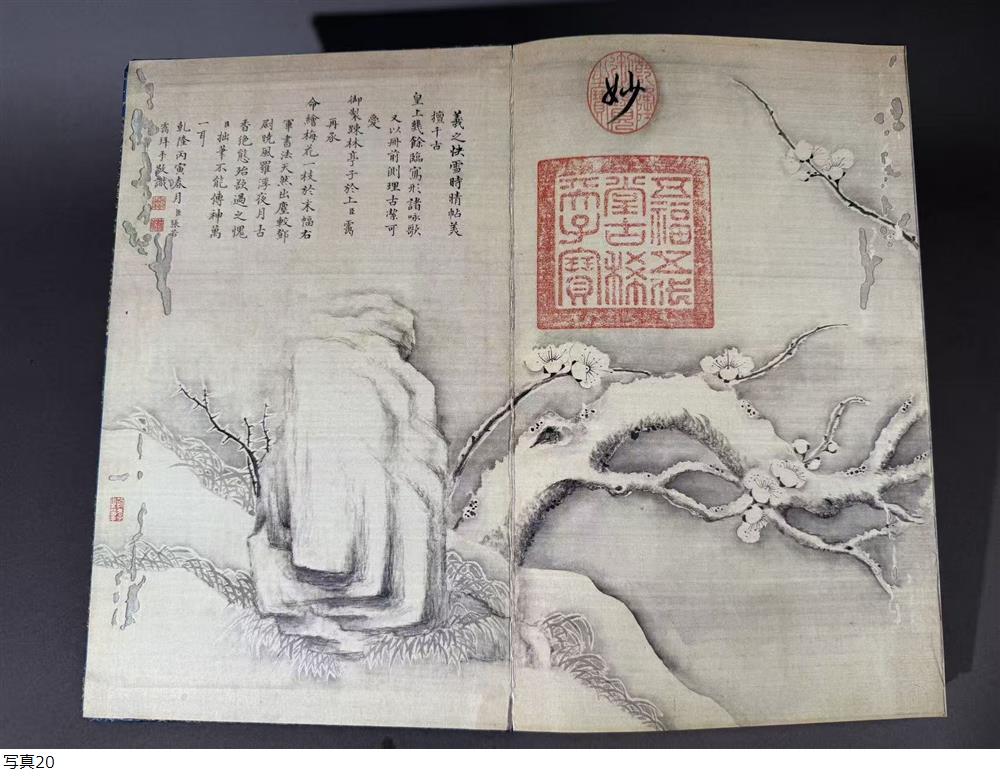 妙
五福五代
堂古稀
天子寶
羲之快雪時晴帖美
擅千古
皇上幾餘臨寫形諸詠歌
又以冊前側理古潔可
愛
御製疎林亭子於上臣靄
再承
命繪梅花一枝於末幅右
軍書法天然出塵較鄧
尉曉風羅浮夜月古
香絕態殆欲過之愧
臣拙筆不能傳神萬
一
乾隆丙寅春月臣張若
靄拜手敬識
写真20